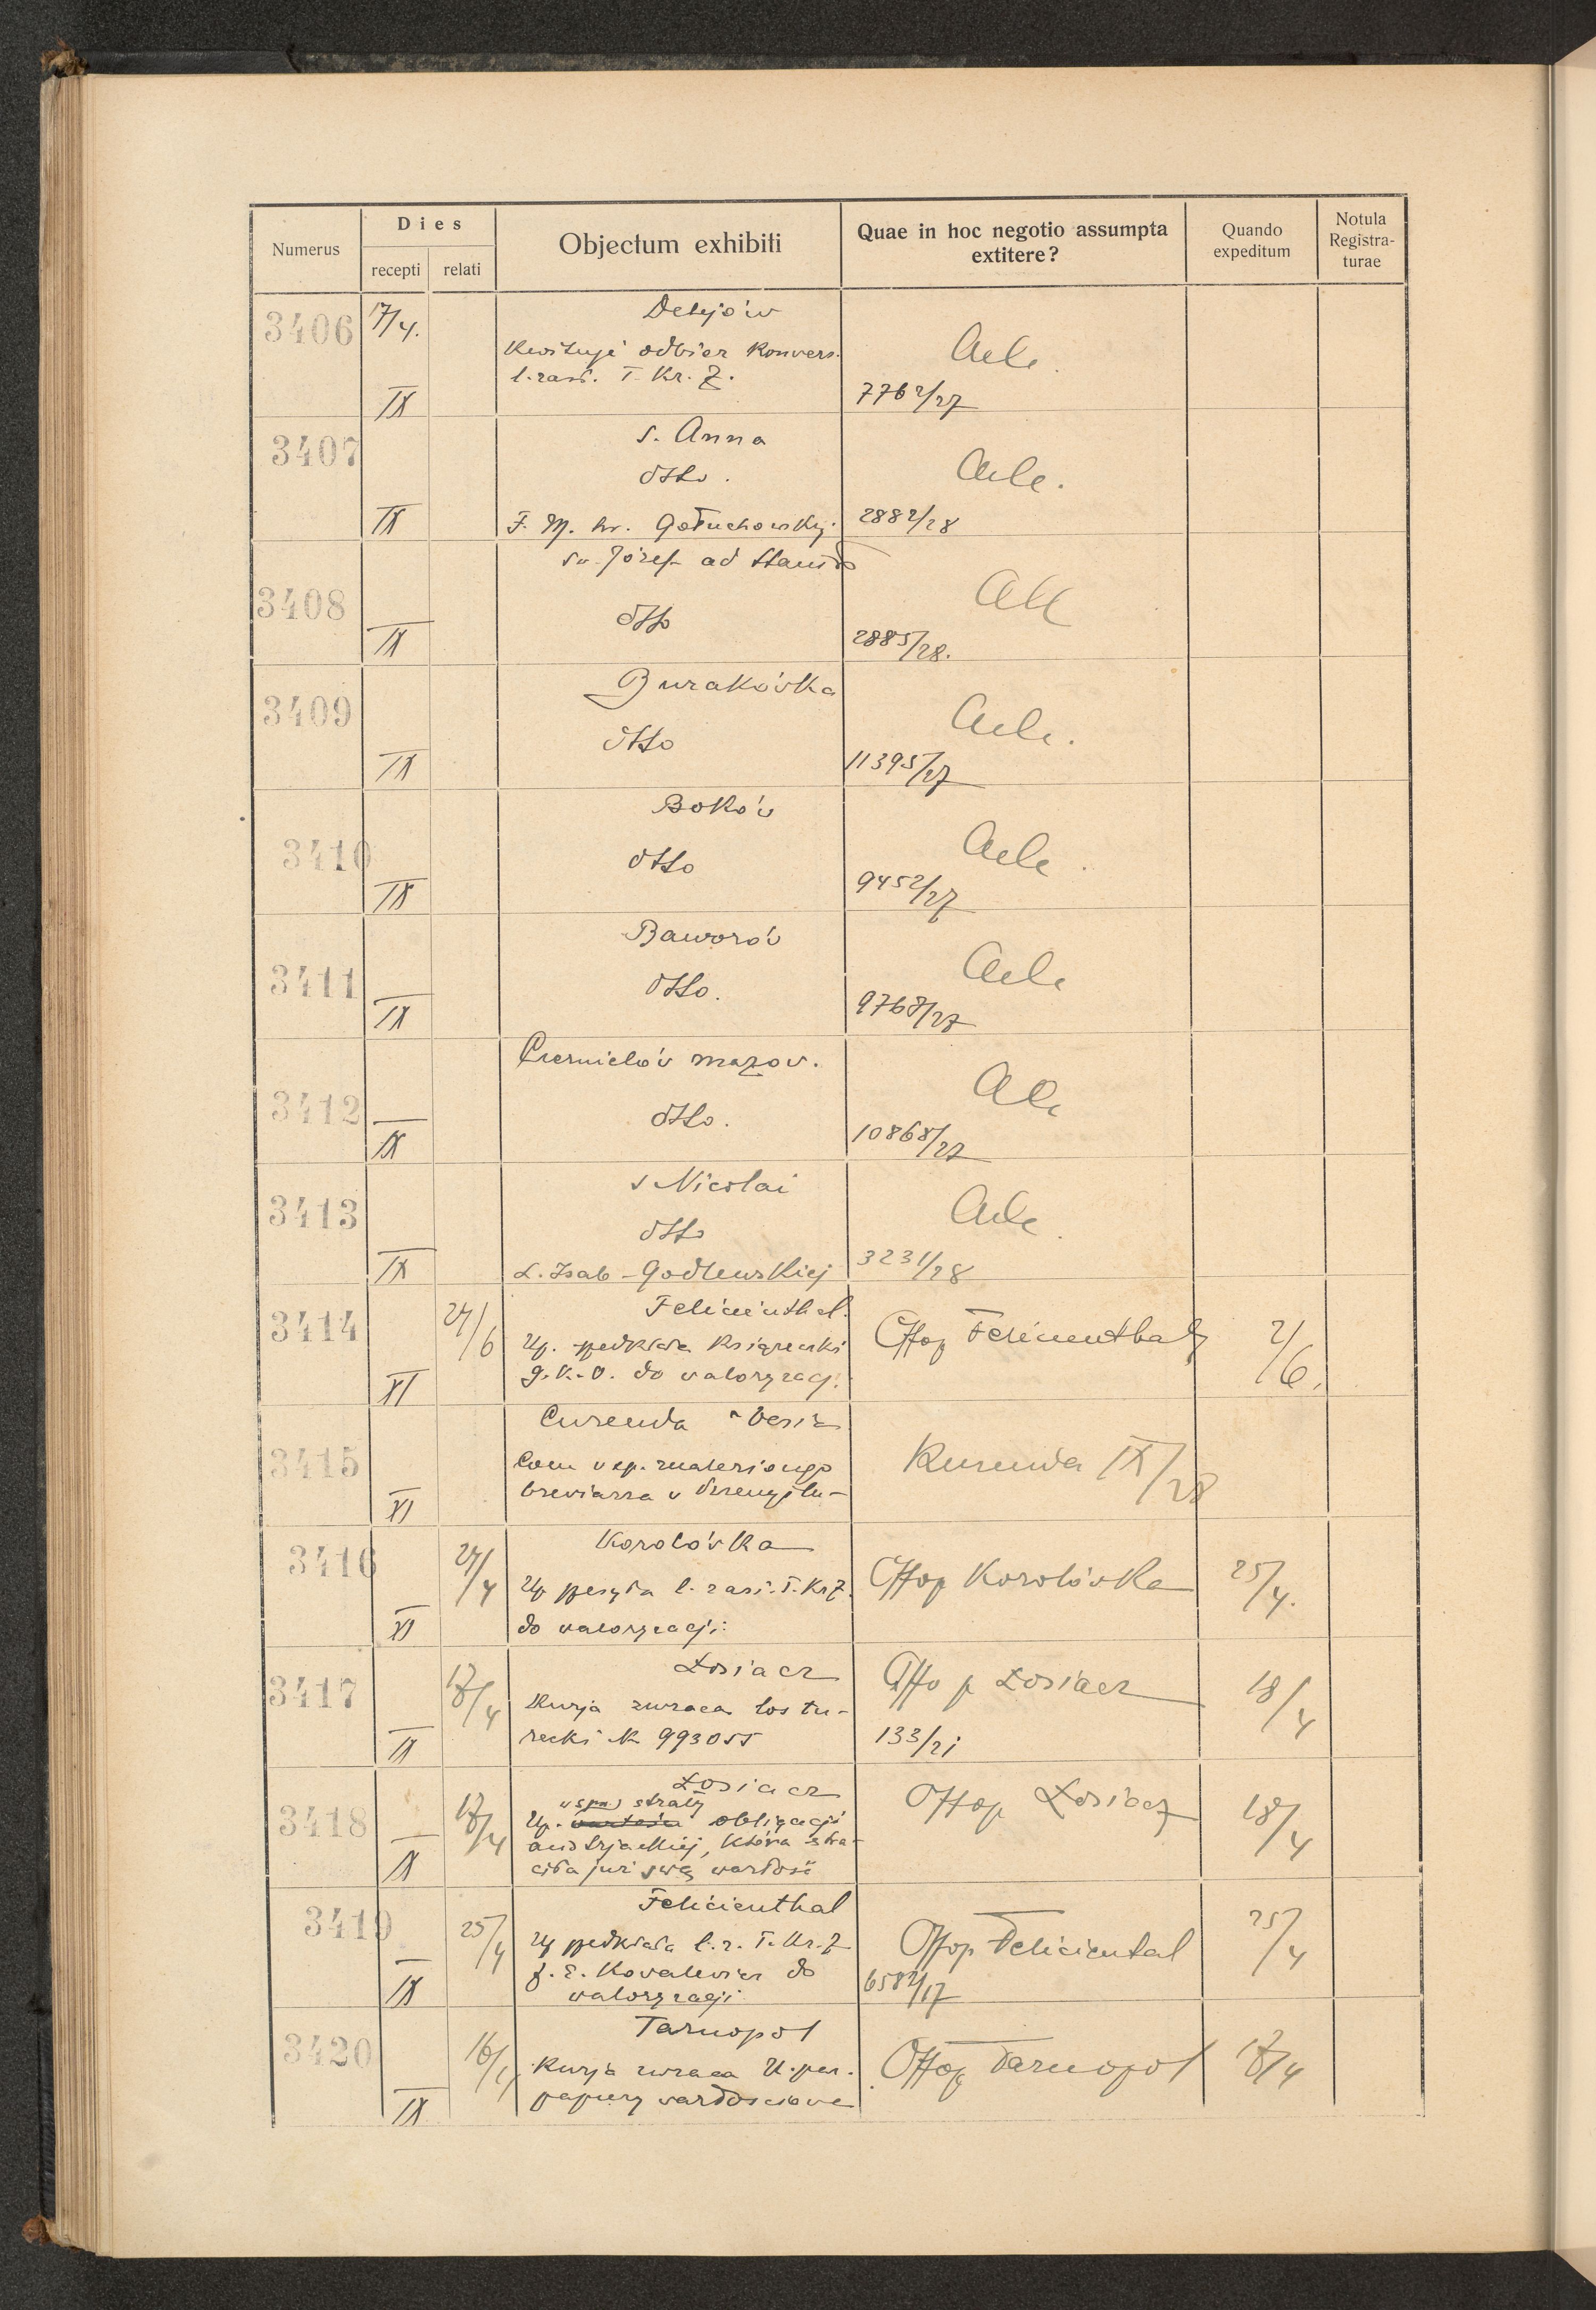 Numerus
Dies
recepti
relati
Objectum exhibiti
Quae in hoc negotio assumpta
extitere?
Quando
expeditum
Notula
Registra-
turae
3406
17/4.
IX
Delejów
Kwituje odbiór konwers.
l. zast. T. Kr. Z.
7762/27
3407
IX
S. Anna
dtto.
F. M. hr. Gołuchowskiej.
2882/28
3408
IX
Św. Józef ad Stanisł
dtto
2885/28.
3409
IX
Burakówka
dtto
11395/27
3410
IX
Boków
dtto
9452/27
3411
IX
Baworów
dtto.
9768/27
3412
IX
Czernielów mazow.
dtto.
10868/27
3413
IX
s Nicolai
dtto
L. Izab. Godlewskiej
3231/28
3414
XI
27/6
Felicienthal.
Up. przedkłada książeczki
g. k. o. do waloryzacj.
Offop Felicienthal
2/6.
3415
XI
Curenda
breviarza v
Kurenda IX/28
3416
XI
24/4
Korolówka
Up przesyła l. zast. T. Kr Z.
do waloryzacji.
Offop Korolówka
25/4.
3417
IX
18/4
Łosiacz
Kurja zwraca los tu-
recki N 993055
Offo p Łosiacz
133/21
18/4
3418
IX
18/4
Łosiacz
w spr straty
Up. wartości obligacji
austrjackiej, która stra-
ciła już swą wartość
Offop Łosiacz
18/4
3419
IX
25/4
Felicienthal
Up przedkłada l. z. T. Kr. Z
f. E. Kovalevicz do
waloryzacji
Offop Feliciental
6582/17
25/4
3420
IX
16/4
Tarnopol
Kurja zwraca U. par.
papiery wartościowe
Offop Tarnopol
18/4